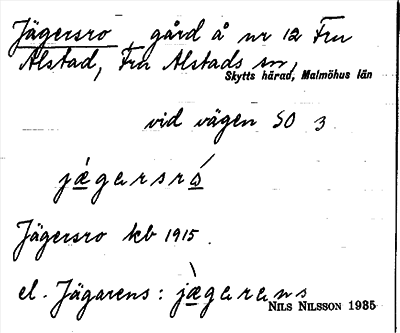 Jägersro gård å nr 12 Fru
Alstad, Fru Alstads sn,
Skytts härad, Malmöhus län
vid vägen SO 3
jǽgersró
Jägersro kb 1915.
el. Jägarens: jæ̀garens
NILS NILSSON 1935